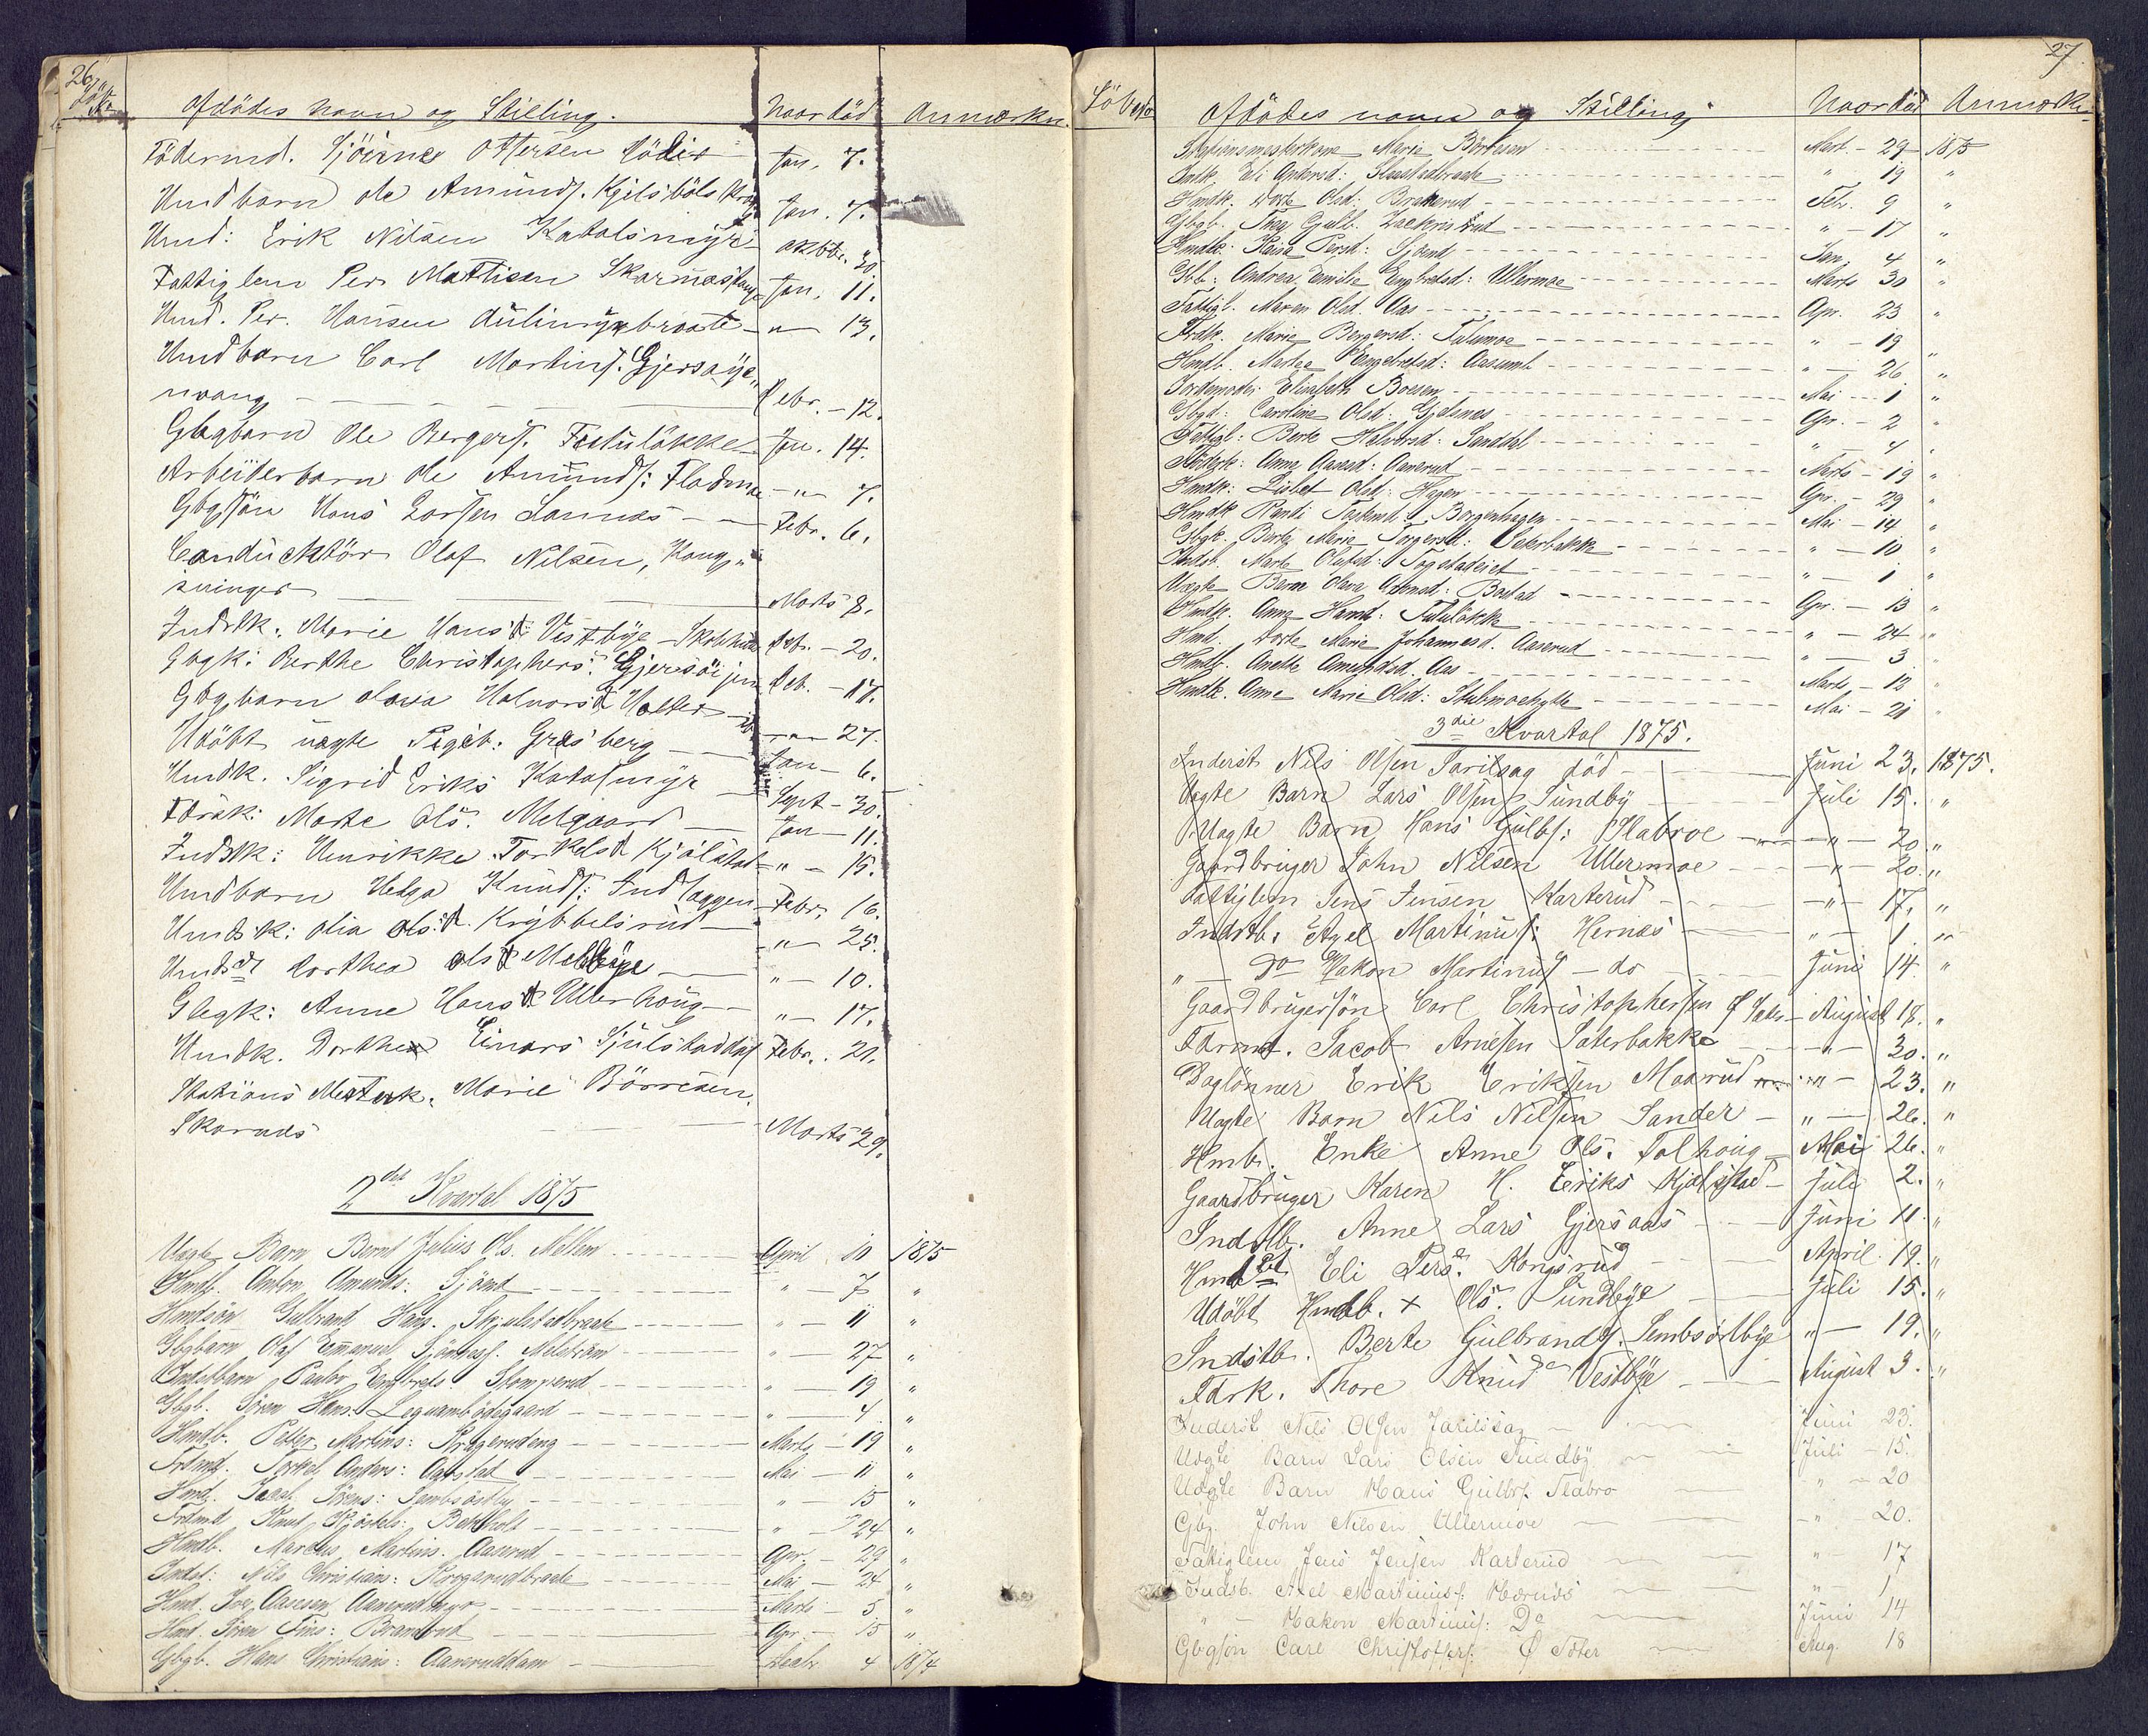 26
Löb. No
Afdödes Navn og Stilling. Naar död Anmærkn.
Föderaad. Sjöinne Ottersen Jan. 7.
Hmdbarn Ole Amunds. Kjelsböls Jan. 7.
Hmd: Erik Nilsen Katolsmÿr oktbr. 30
Fattiglem Per Mattisen Skarnæs Jan. 11.
Hmd. Per. Hansen Aulimyrbraate " 13.
Hmdbarn Carl Martins. Gjersøye
nvang Febr. - 12.
Gbgbarn Ole Bergers. Fululøkke Jan. 14.
Arbeiderbarn Ole Amunds: Fladmoe " 7.
Gbgsön Hans Larsen Sannæs Febr. 6.
Conducktör Olaf Nilsen, Kong„
svinger Marts 8.
Indstk. Marie Hansd: Vestbÿe Febr. - 20.
Gbgk: Berthe Christophers: Gjersöijen Feb. - 17.
Gbgbarn Olava Halvorsd Holter " 27.
Udöbt uægte Pigeb: Græsberg Jan - 6.
Hmdk. Sigrid Eriks Katolsmÿr Sept - 30.
Fdrdk: Marte Ols. Melgaard Jan - 11.
Indstk: Henrikke Torkelsd Kjölstad " - 15.
Hmdbarn Helga Knuds: Indlaggen Febr. 16.
Hmdsk: Olia Olsd. Krÿbbelsrud " 25.
Hmdsdt Dorthea Olsd Mellbÿe " - 10.
Gbgk: Anne Hansd Ullerhoug " - 17.
Hmdk. Dorthea Einars Sjulstaddal Febr. 21.
Stations Mesterk. Marie Börresen.
Skarnæs Marts 29.
2det Kvartal 1875
Uægte Barn Bernt Julius Ols. Mellem April 10 1875
Hmds. Anton Amunds: Sjönd " - 7 "
Hmdsön Gulbrand Hans. Skjulstadbraate " - 11 "
Gbgbarn Olaf Emanuel Melström " - 27 "
Indstbarn Paulov Engbrets: Stomperud " - 19 "
Gbgb. Sören Hans. Legnambödegaard " - 4 "
Hmdb. Petter Martins: Kroggerudeng Marts - 19 "
Frdmd. Torkel Anders: Aabstad Mai - 11 "
Hmd. Jacob Sörens: Sembsöstby " - 15 "
Frdmd Knut Kjöstels: Bakholt " - 24 "
Hmdb. Marcus Martins. Aaserud Apr. - 29 "
Indst: Nils Christians: Kroggerudbraate Mai - 24 "
Hmd. Iver Aasesen Aanerudmyr Marts - 5 "
Hmd. Sören Fins: Branderud Apr. - 15 "
Gbgb. Hans Christians: Aaneruddam Decbr 4 1874
27.
Löb No
Afdödes navn og Stilling Naar död Anmærkn.
Stationsmesterkone Marie Börresen Mart. - 29 1875
Indk. Eli Andersd: Skaslabraate " 19 "
Hmdk. Dorte Olsd: Branerud Febr. 9 "
Gbgb. Thea Gulb. Zachrisrud " - 17 "
Hmdk. Kaisa Persd: Sjönd Jan. 4 "
Gbb: Andrea Emilie Engbretsd: Ullermoe Marts 30 "
Fattigl. Maren Olsd. Aas Apr. 23 "
Frdk. Marie Bergersd: Fulumoe " - 19 "
Hmdb. Martea Engebretsd: Aasumb " - 26 "
Jordemoder Elisabeth Boesen Mai - 1 "
Gbgd: Caroline Olsd: Gjelsnes Apr. - 2 "
Fattigl: Berte Halvorsd: Sanddal " 4 "
Föderk: Anne Aasesd: Aanerud Marts - 19 "
Hmdk: Lisbet Olsd: Hagen Apr. - 29 "
Hmdk Randi Torkersd: Borgenhagen Mai - 14 "
Gbgk. Berte Marie Torgersd: Seterbakk " - 10 "
Indstk. Marte Olufsd: Togstadeiet " - 1 "
Uægte Barn Olava Amundsd: Bostad Apr. - 13 "
Hmdk. Anne Hansd: Fululøkk " - 24 "
Hmd. Dorte Marie Johannesd. Aaserud " - 3 "
Hmdb. Anette Amundsd. Aas Marts - 12 "
Hmdk. Anne Marie Olsd: Stubmoehytte Mai - 21 "
3die Kvartal 1875.
Inderst Nils Olsen Tarilsag död Juni 23. 1875.
Uægte Barn Lars Olsen Sundbÿ Juli 15. "
Uægte Barn Hans Gulbs: Slabroe " - 20. "
Gaardbruger John Nilsen Ullermoe " - 20. "
Fattiglem Jens Jensen Karterud " - 17. "
Indstb. Axel Martinus: Hernæs " - 1. "
" - Do Hakon Martinus - do Juni 14. "
Gaardbrugersön Carl Christophersen Ø Sæter August 18. "
Fdrmd. Jacob Arnesen Säterbakke " - 30. "
Daglönner Erik Eriksen Maarud " - 23. "
Uægte Barn Nils Nilsen Sander " - 26. "
Hmb. Enke Anne Ols. Folhoug Mai 26. "
Gaardbruger Karen H. Eriks Kjølstad Juli 2. "
Indstb. Anne Lars Gjersaas Juni 11. "
Hmdst Eli Pers. Kongsrud April 19. "
Udöbt Hmdb. x Ols. Sundbÿe Juli 15. "
Indstb. Berte Gulbrands. Sembsöstbÿe " - 19. "
Fdrk. Thore Knuds Vestbÿe August 3. "
Inderst Nils Olsen Tarilsag Juni 23.
Uægte Barn Lars Olsen Sundbÿ Juli - 15.
Uægte Barn Hans Gulbr. Slabro " - 20
Gbg. John Nilsen Ullermoe " - 20.
Fattiglem Jens Jensen Karterud " 17
Indsb. Axel Martinus: Hernæs " 1
" - Hakon Martinus: Do Juni 14
Gbgsön Carl Christoffers: Ø Sæter Aug. 18